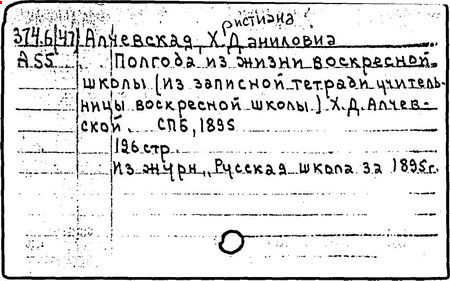 ристиана
374.6(47) Алчевская, Х. Даниловна
А55 Полгода из жизни воскресной
школы (из записной тетради учитель-
ницы воскресной школы.) Х.Д.Алчев-
ской. СПБ, 1895
126 стр.
Из журн. „Русская школа за 1895г.